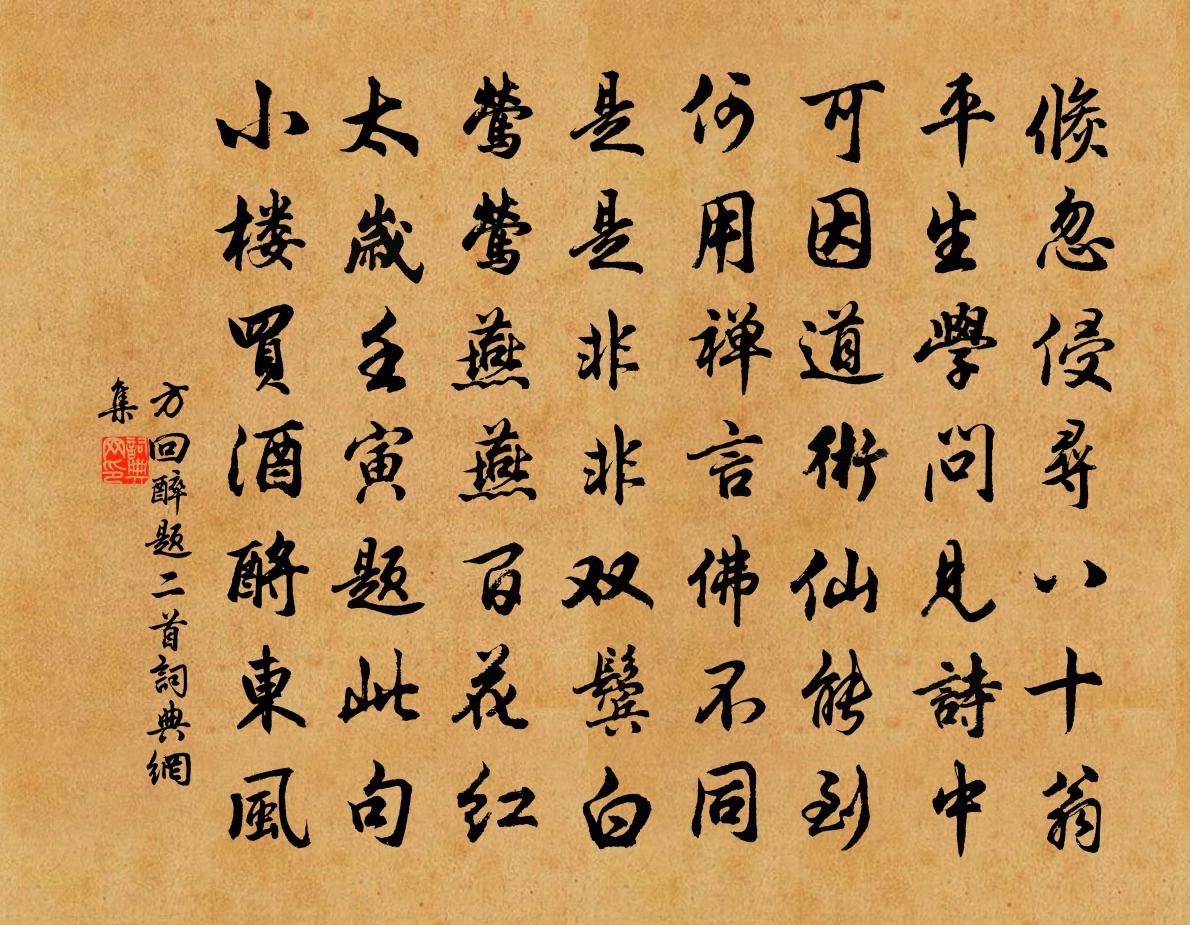 倏忽侵尋八十翁
平生學问見詩中
可因道術仙能到
何用禅言佛不同
是是非非双鬓白
莺莺燕燕百花红
太歲壬寅题此句
小楼買酒酹東風
方回醉题二首詞典網
集
詞典网印